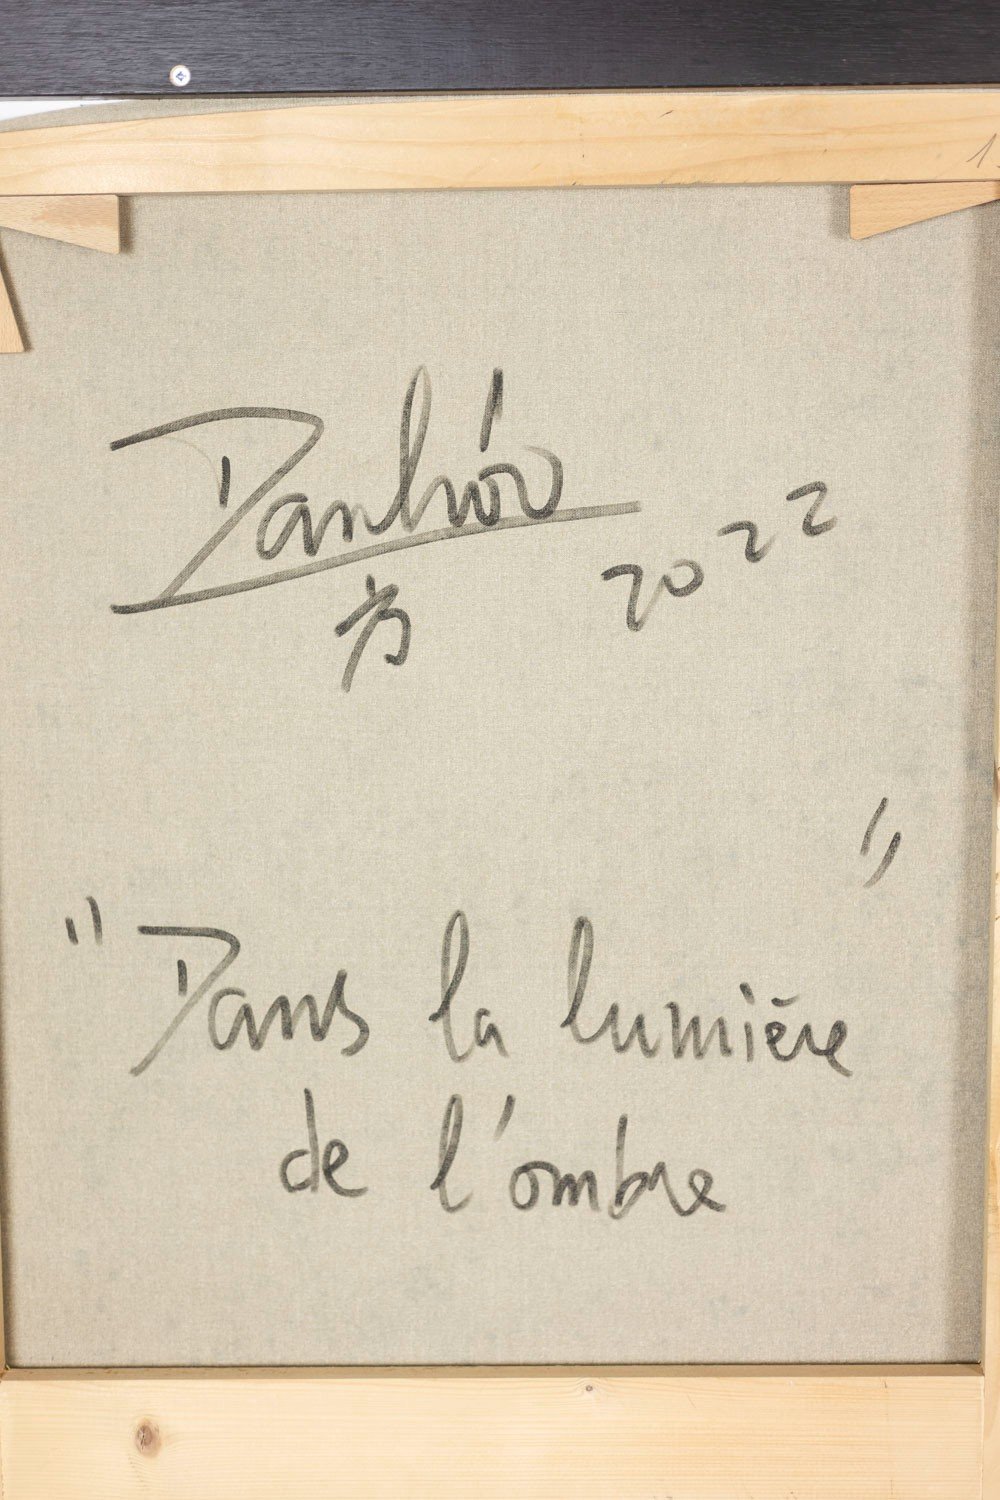 Danhôo
2022
" Dans la lumière "
de l'ombre
1